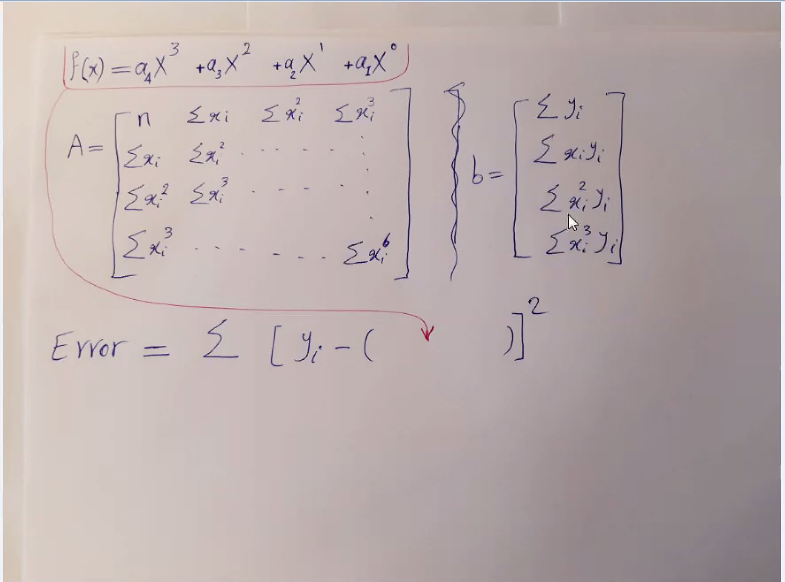 f(x) = a₄x³ + a₃x² + a₂x¹ + a₁x⁰
A = [ n Σxi Σxi² Σxi³
Σxi Σxi² . . . . . .
Σxi² Σxi³ . . . . . .
Σxi³ . . . . . . . Σxi⁶ ]
b = [ Σyi
Σxiyi
Σxi²yi
Σxi³yi ]
Error = Σ [ yi - ( ) ]²